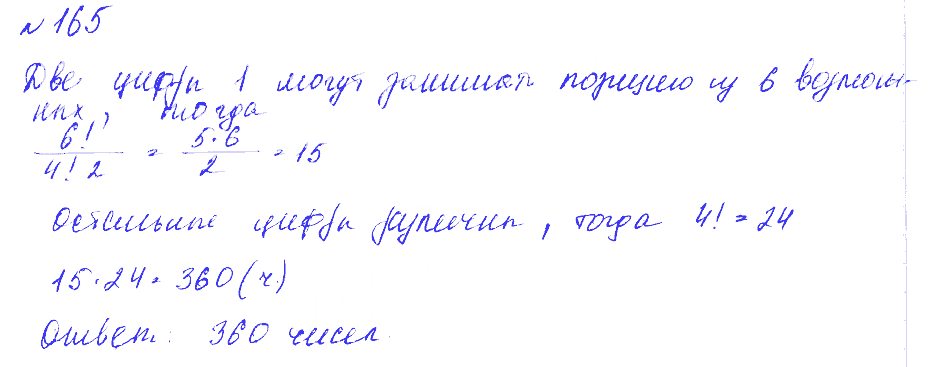 №165
Две цифры 1 могут занимать позицию из 6 возмож-
ных, тогда
6! / 4! 2 = 5·6 / 2 = 15
Остальные цифры различны, тогда 4! = 24
15·24 = 360 (ч.)
Ответ: 360 чисел.